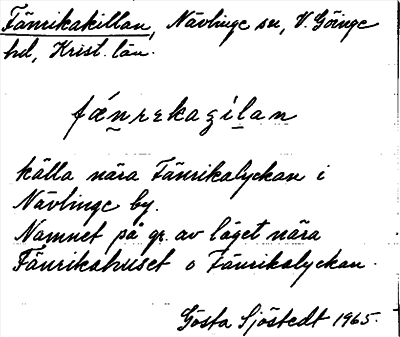 Fänrikakillan, Nävlinge sn, V. Göinge
hd, Krist. län.
källa nära Fänrikalyckan i
Nävlinge by.
Namnet på gr. av läget nära
Fänrikahuset o Fänrikalyckan.
Gösta Sjöstedt 1965.